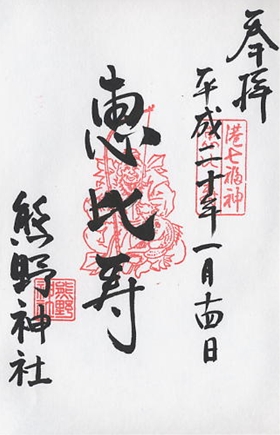 奉拝
港七福神
平成二十年一月十四日
恵比寿
熊野神社
熊野